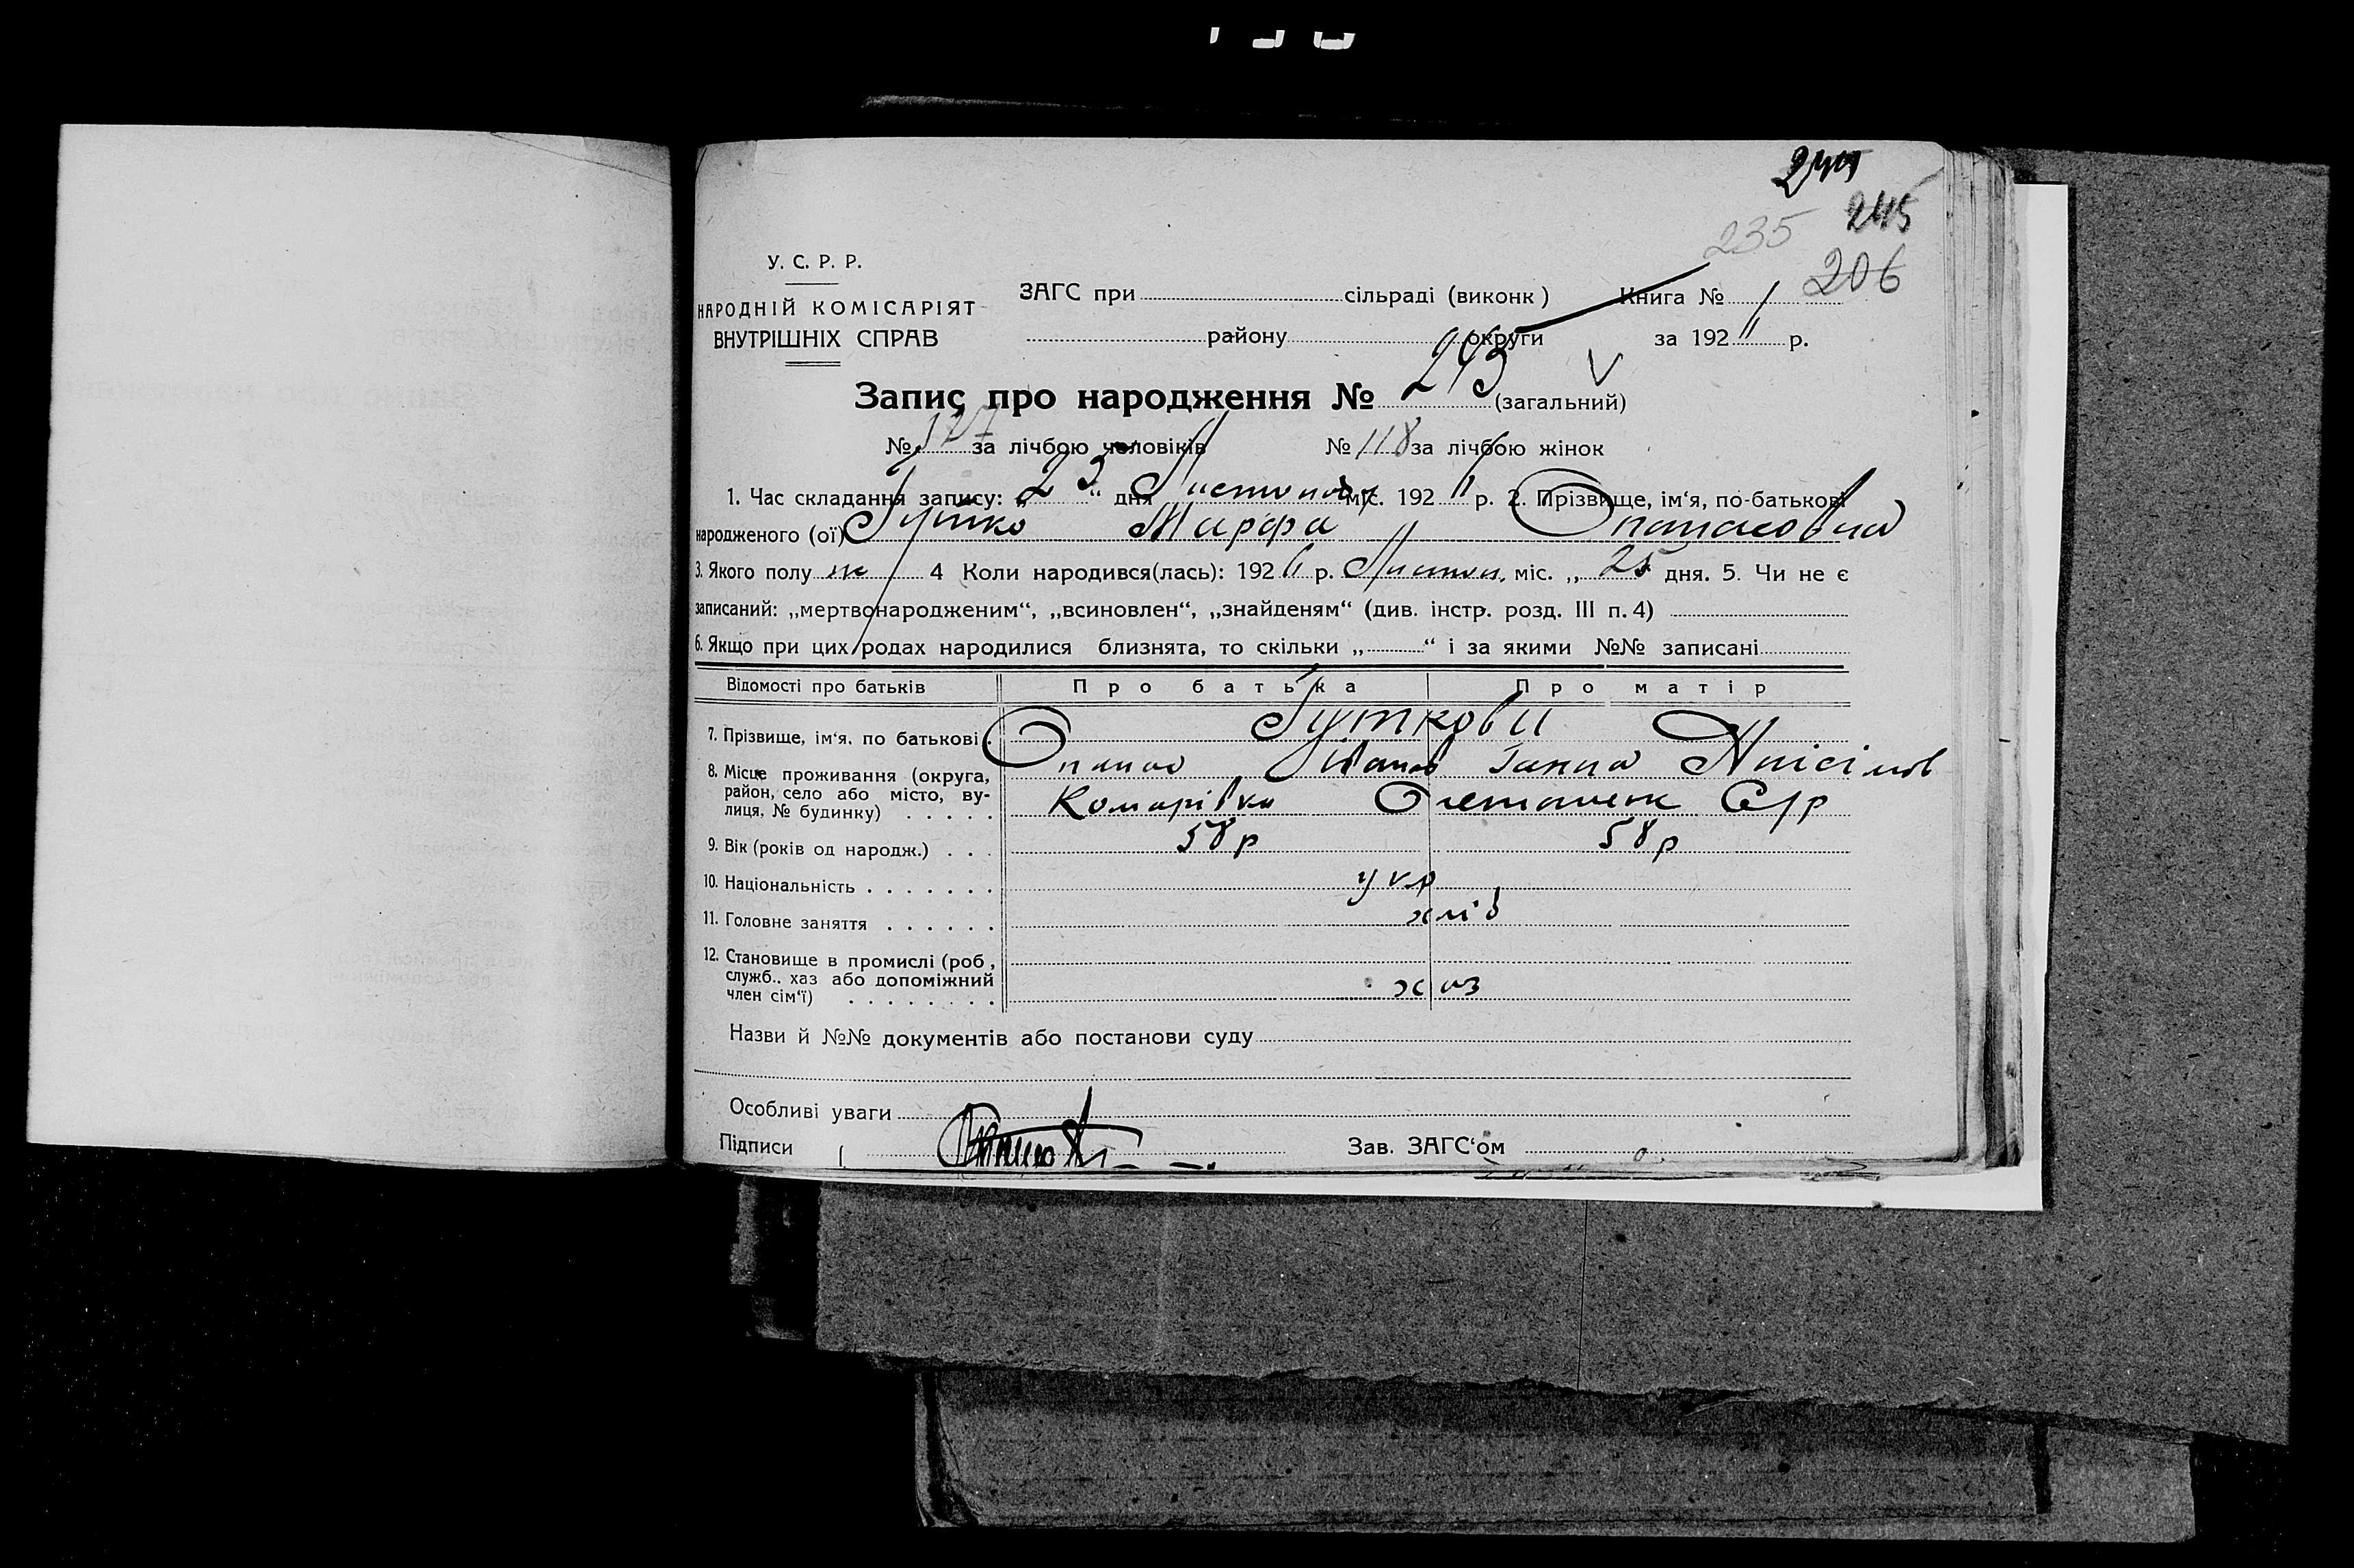 245
235
206
У. С. Р. Р.
НАРОДНІЙ КОМІСАРІЯТ
ВНУТРІШНІХ СПРАВ
ЗАГС при сільраді (виконк) Книга № 1
району округи за 192 р.
Запис про народження № 243 (загальний)
№ 127 за лічбою чоловіків № 118 за лічбою жінок
1. Час складання запису: „23“ дня Листопаду міс. 192 р. 2. Прізвище, ім‘я, по-батькові
народженого (ої) Гутко Марфа Опанасовна
3. Якого полу ж 4 Коли народився(лась): 1926 р. Листоп. міс. „ 25 дня. 5. Чи не є
записаний: „мертвонародженим“, „всиновлен“, „знайденям“ (див. інстр. розд. III п. 4)
6. Якщо при цих родах народилися близнята, то скільки „ “ і за якими №№ записані
Відомості про батьків Про батька Про матір
7. Прізвище, ім‘я, по батькові Гуткови
Опанас Іванов Ганна Анісімов
8. Місце проживання (округа,
район, село або місто, ву-
лиця, № будинку) Комарівка С/р
9. Вік (років од народж.) 58 р 58 р
10. Національність укр
11. Головне заняття хліб
12. Становище в промислі (роб,
служб., хаз або допоміжний
член сім‘ї) хаз
Назви й №№ документів або постанови суду
Особливі уваги
Підписи Зав. ЗАГС‘ом